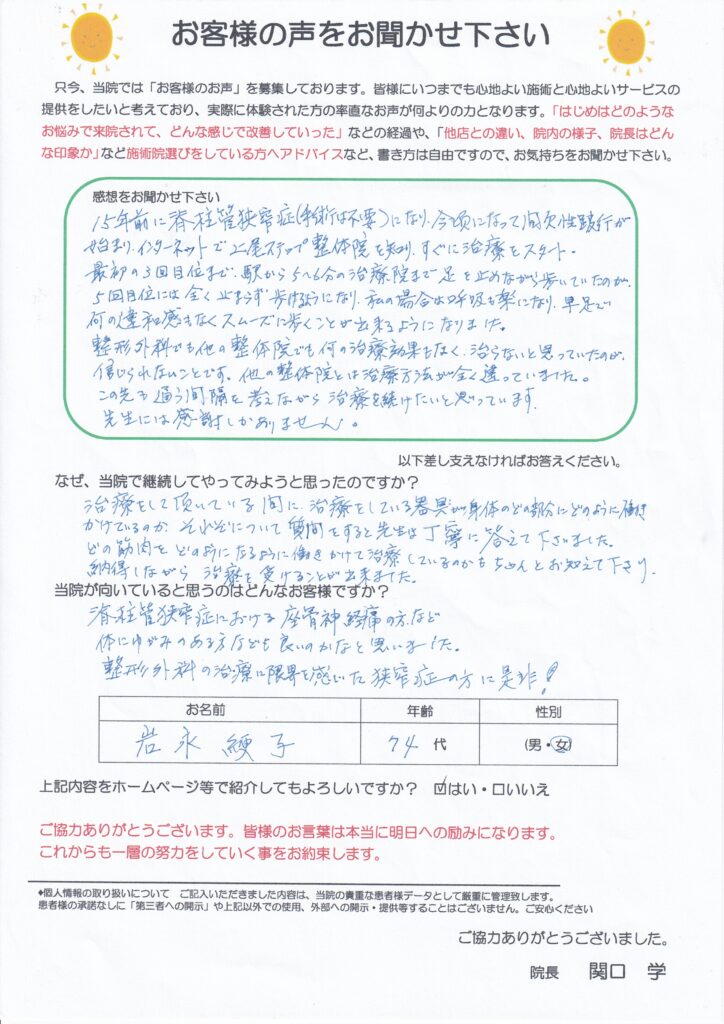 お客様の声をお聞かせ下さい
只今、当院では「お客様のお声」を募集しております。皆様にいつまでも心地よい施術と心地よいサービスの
提供をしたいと考えており、実際に体験された方の率直なお声が何よりの力となります。「はじめはどのような
お悩みで来院されて、どんな感じで改善していった」などの経過や、「他店との違い、院内の様子、院長はどん
な印象か」など施術院選びをしている方へアドバイスなど、書き方は自由ですので、お気持ちをお聞かせ下さい。
感想をお聞かせ下さい
15年前に脊柱管狭窄症(手術は不要)になり、今頃になって間欠性跛行が
始まり、インターネットで上尾ステップ整体院を知り、すぐに治療をスタート。
最初の3回目位まで、駅から5~6分の治療院まで足を止めながら歩いていたのが、
5回目位には全く止まらず歩けるようになり、私の場合は呼吸も楽になり、早足で
何の違和感もなくスムーズに歩くことが出来るようになりました。
整形外科でも他の整体院でも何の治療効果もなく、治らないと思っていたのが、
信じられないことです。他の整体院とは治療方法が全く違っていました。
この先も通う間隔を考えながら治療を続けたいと思っています。
先生には感謝しかありません。
以下差し支えなければお答えください。
なぜ、当院で継続してやってみようと思ったのですか？
治療をして頂いている間に、治療をしている器具が身体のどの部分にどのように働き
かけているのか、それぞれについて質問をすると先生は丁寧に答えて下さいました。
どの筋肉をどのようになるように働きかけて治療しているのかもちゃんとお知えて下さり、
納得しながら治療を受けることが出来ました。
当院が向いていると思うのはどんなお客様ですか？
脊柱管狭窄症における座骨神経痛の方など
体にゆがみのある方なども良いのかなと思いました。
整形外科の治療に限界を感じた狭窄症の方に是非！
お名前 年齢 性別
岩永 綾子 74 代 (男・女)
上記内容をホームページ等で紹介してもよろしいですか？ ☑はい・□いいえ
ご協力ありがとうございます。皆様のお言葉は本当に明日への励みになります。
これからも一層の努力をしていく事をお約束します。
♦個人情報の取り扱いについて ご記入いただきました内容は、当院の貴重な患者様データとして厳重に管理致します。
患者様の承諾なしに「第三者への開示」や上記以外での使用、外部への開示・提供等することはございません。ご安心ください
ご協力ありがとうございました。
院長 関口 学